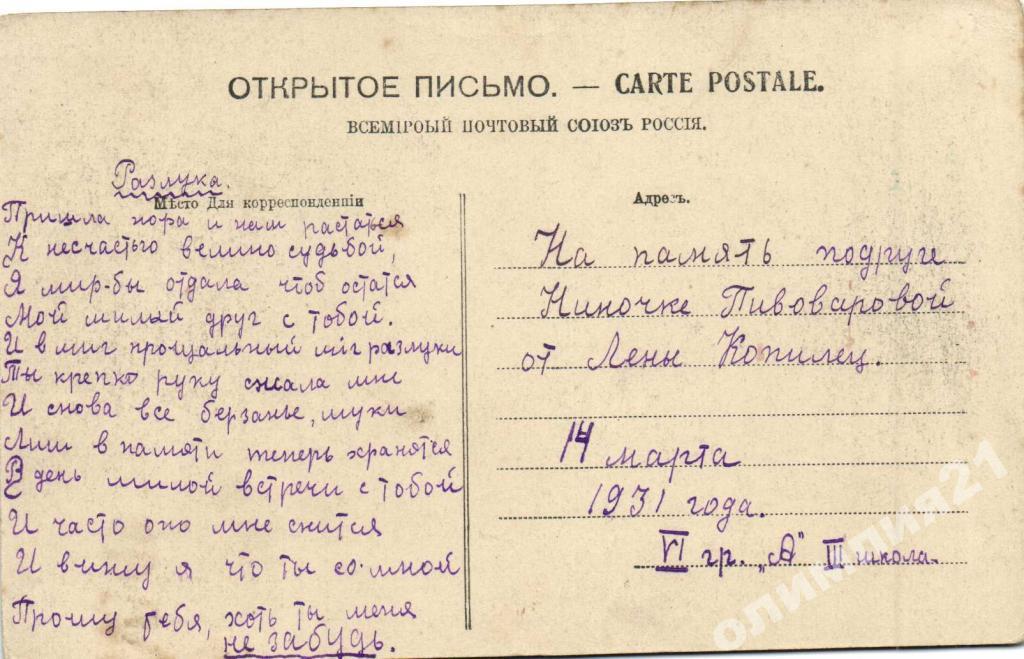 ОТКРЫТОЕ ПИСЬМО. — CARTE POSTALE.
ВСЕМІРОЫЙ ПОЧТОВЫЙ СОЮЗЪ РОССІЯ.
Разлука.
Мѣсто Для корреспонденціи
Пришла пора и нам растаться
К несчастью велино судьбой,
Я мир-бы отдала чтоб остатся
Мой милый друг с тобой.
И в миг прощальный миг разлуки
Ты крепко руку сжала мне
И снова все берзанье, муки
Лиш в памяти теперь хранятся
В день милой встречи с тобой
И часто оно мне снится
И вижу я что ты со-мной
Прошу тебя, хоть ты меня
не забудь.
Адресъ.
На память подруге
Ниночке Пивоваровой
от Лены Копилец.
14 марта
1931 года.
VI гр. „А" III школа.
олимпия21